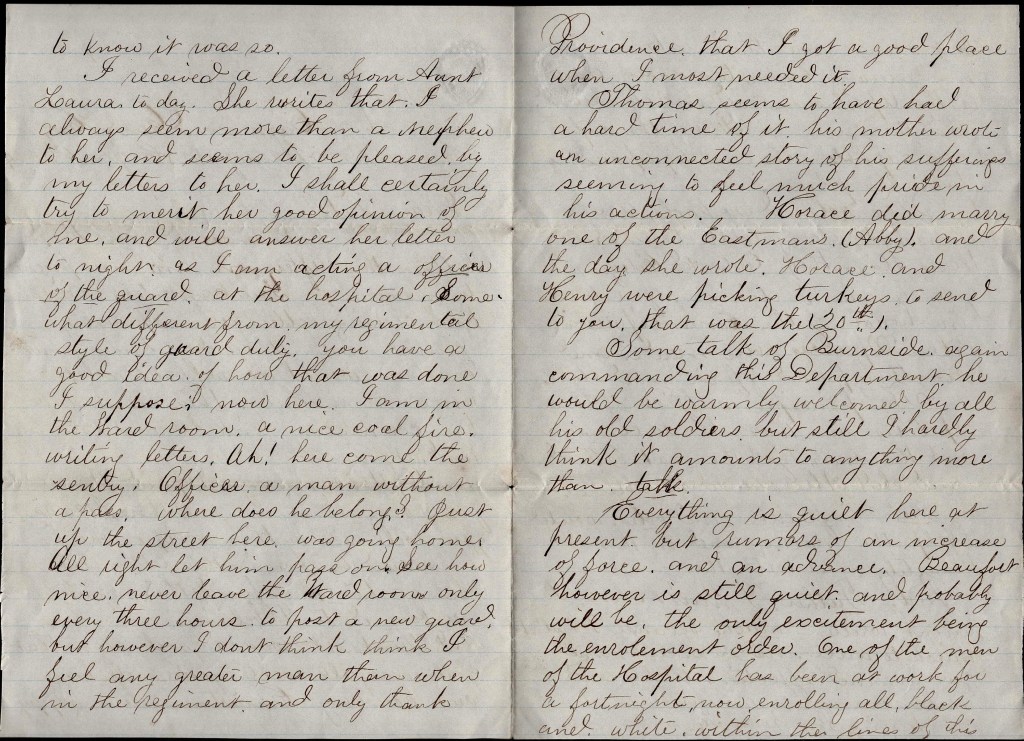 to know it was so.
I received a letter from Aunt
Laura to day. She writes that I
always seem more than a Nephew
to her, and seems to be pleased by
my letters to her. I shall certainly
try to merit her good opinion of
me, and will answer her letter
to night, as I am acting a officer
of the guard, at the hospital. Some-
what different from my regimental
style of guard duty. you have a
good idea of how that was done
I suppose; now here. I am in
the Ward room, a nice coal fire.
writing letters, Ah! here come the
sentry. Officer, a man without
a pass. where does he belong? Just
up the street here, was going home.
All right let him pass on. See how
nice. never leave the Ward room only
every three hours to post a new guard.
but however I dont think think I
feel any greater man than when
in the regiment. and only thank
Providence that I got a good place
when I most needed it.
Thomas seems to have had
a hard time of it. his mother wrote
an unconnected story of his sufferings
seeming to feel much pride in
his actions. Horace did marry
one of the Eastmans. (Abby). and
the day she wrote. Horace and
Henry were picking turkeys to send
to you. that was the (20th).
Some talk of Burnside again
commanding this Department he
would be warmly welcomed by all
his old soldiers but still I hardly
think it amounts to anything more
than talk.
Everything is quiet here at
present but rumors of an increase
of force. and an advance. Beaufort
however is still quiet and probably
will be, the only excitement being
the enrolement order. One of the men
of the Hospital has been at work for
a fortnight, now, enrolling all, black
and white, within the lines of this